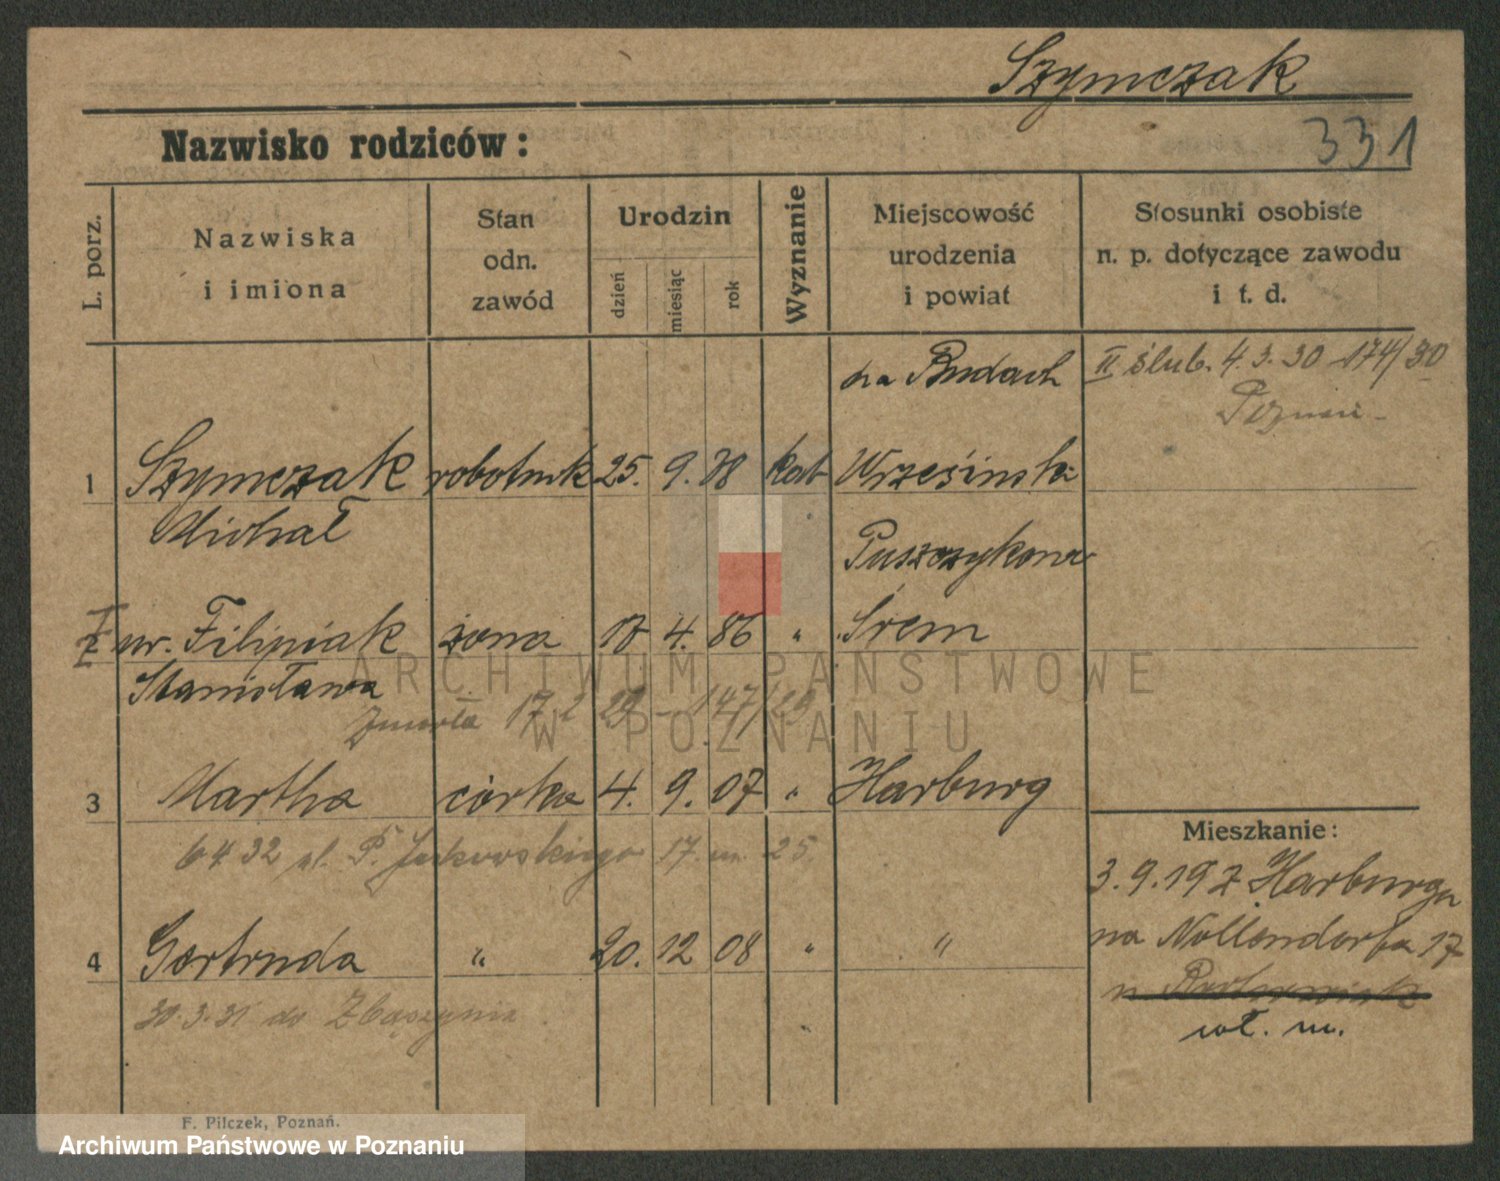 Szymczak
331
Nazwisko rodziców:
L. porz.
Nazwiska
i imiona
Stan
odn.
zawód
Urodzin
dzień
miesiąc
rok
Wyznanie
Miejscowość
urodzenia
i powiat
Stosunki osobiste
n. p. dotyczące zawodu
i t. d.
na Rudach
II ślub. 4.3.30 174/30
Poznań
1 Szymczak robotnik 25. 9. 78 kat Wrzesińsk
Michał
Puszczykowa
2 ur. Filipiak żona 17 4. 86 " Śrem
Stanisława
Zmarła 17.2 29 – 147/29
3 Martha córka 4. 9. 07 " Harburg
6432 ul. P. Jackowskiego 17. m. 25.
Mieszkanie:
3.9.19 z Harburga
na Nollendorfa 17
4 Gertruda " 20. 12 08 " "
30.3.31 do Zbąszynia.
wł. m.
F. Pilczek, Poznań.
ARCHIWUM PAŃSTWOWE
W POZNANIU
Archiwum Państwowe w Poznaniu